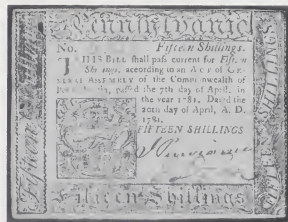 Pennsylvania
No. Fifteen Shillings.
THIS BILL shall pass current for Fifteen
Shillings, according to an ACT of GE-
NERAL ASSEMBLY of the Commonwealth of
Pennsylvania, passed the 7th day of April, in
the year 1781. Dated the
20th day of April, A. D.
1781.
FIFTEEN SHILLINGS
Fifteen Shillings